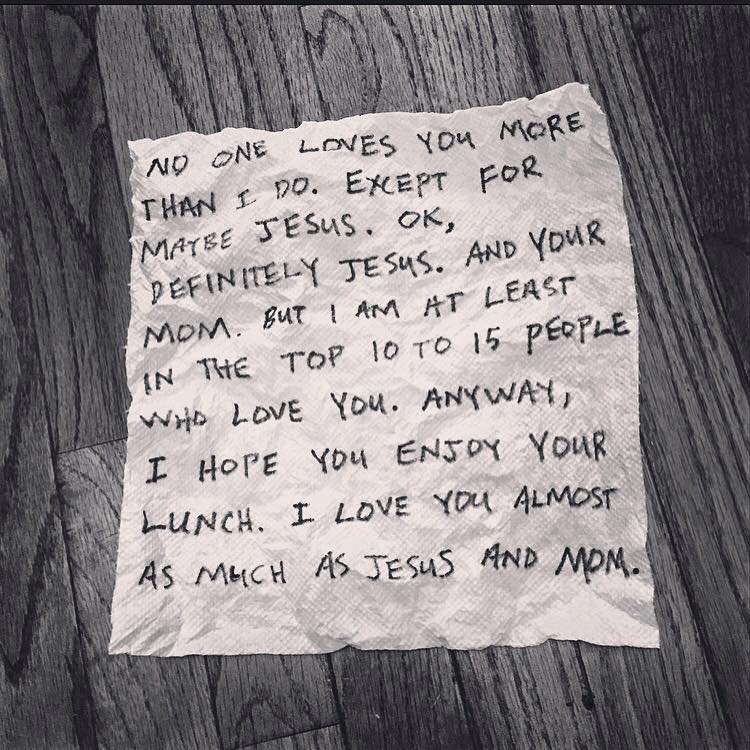 NO ONE LOVES YOU MORE
THAN I DO. EXCEPT FOR
MAYBE JESUS. OK,
DEFINITELY JESUS. AND YOUR
MOM. BUT I AM AT LEAST
IN THE TOP 10 TO 15 PEOPLE
WHO LOVE YOU. ANYWAY,
I HOPE YOU ENJOY YOUR
LUNCH. I LOVE YOU ALMOST
AS MUCH AS JESUS AND MOM.